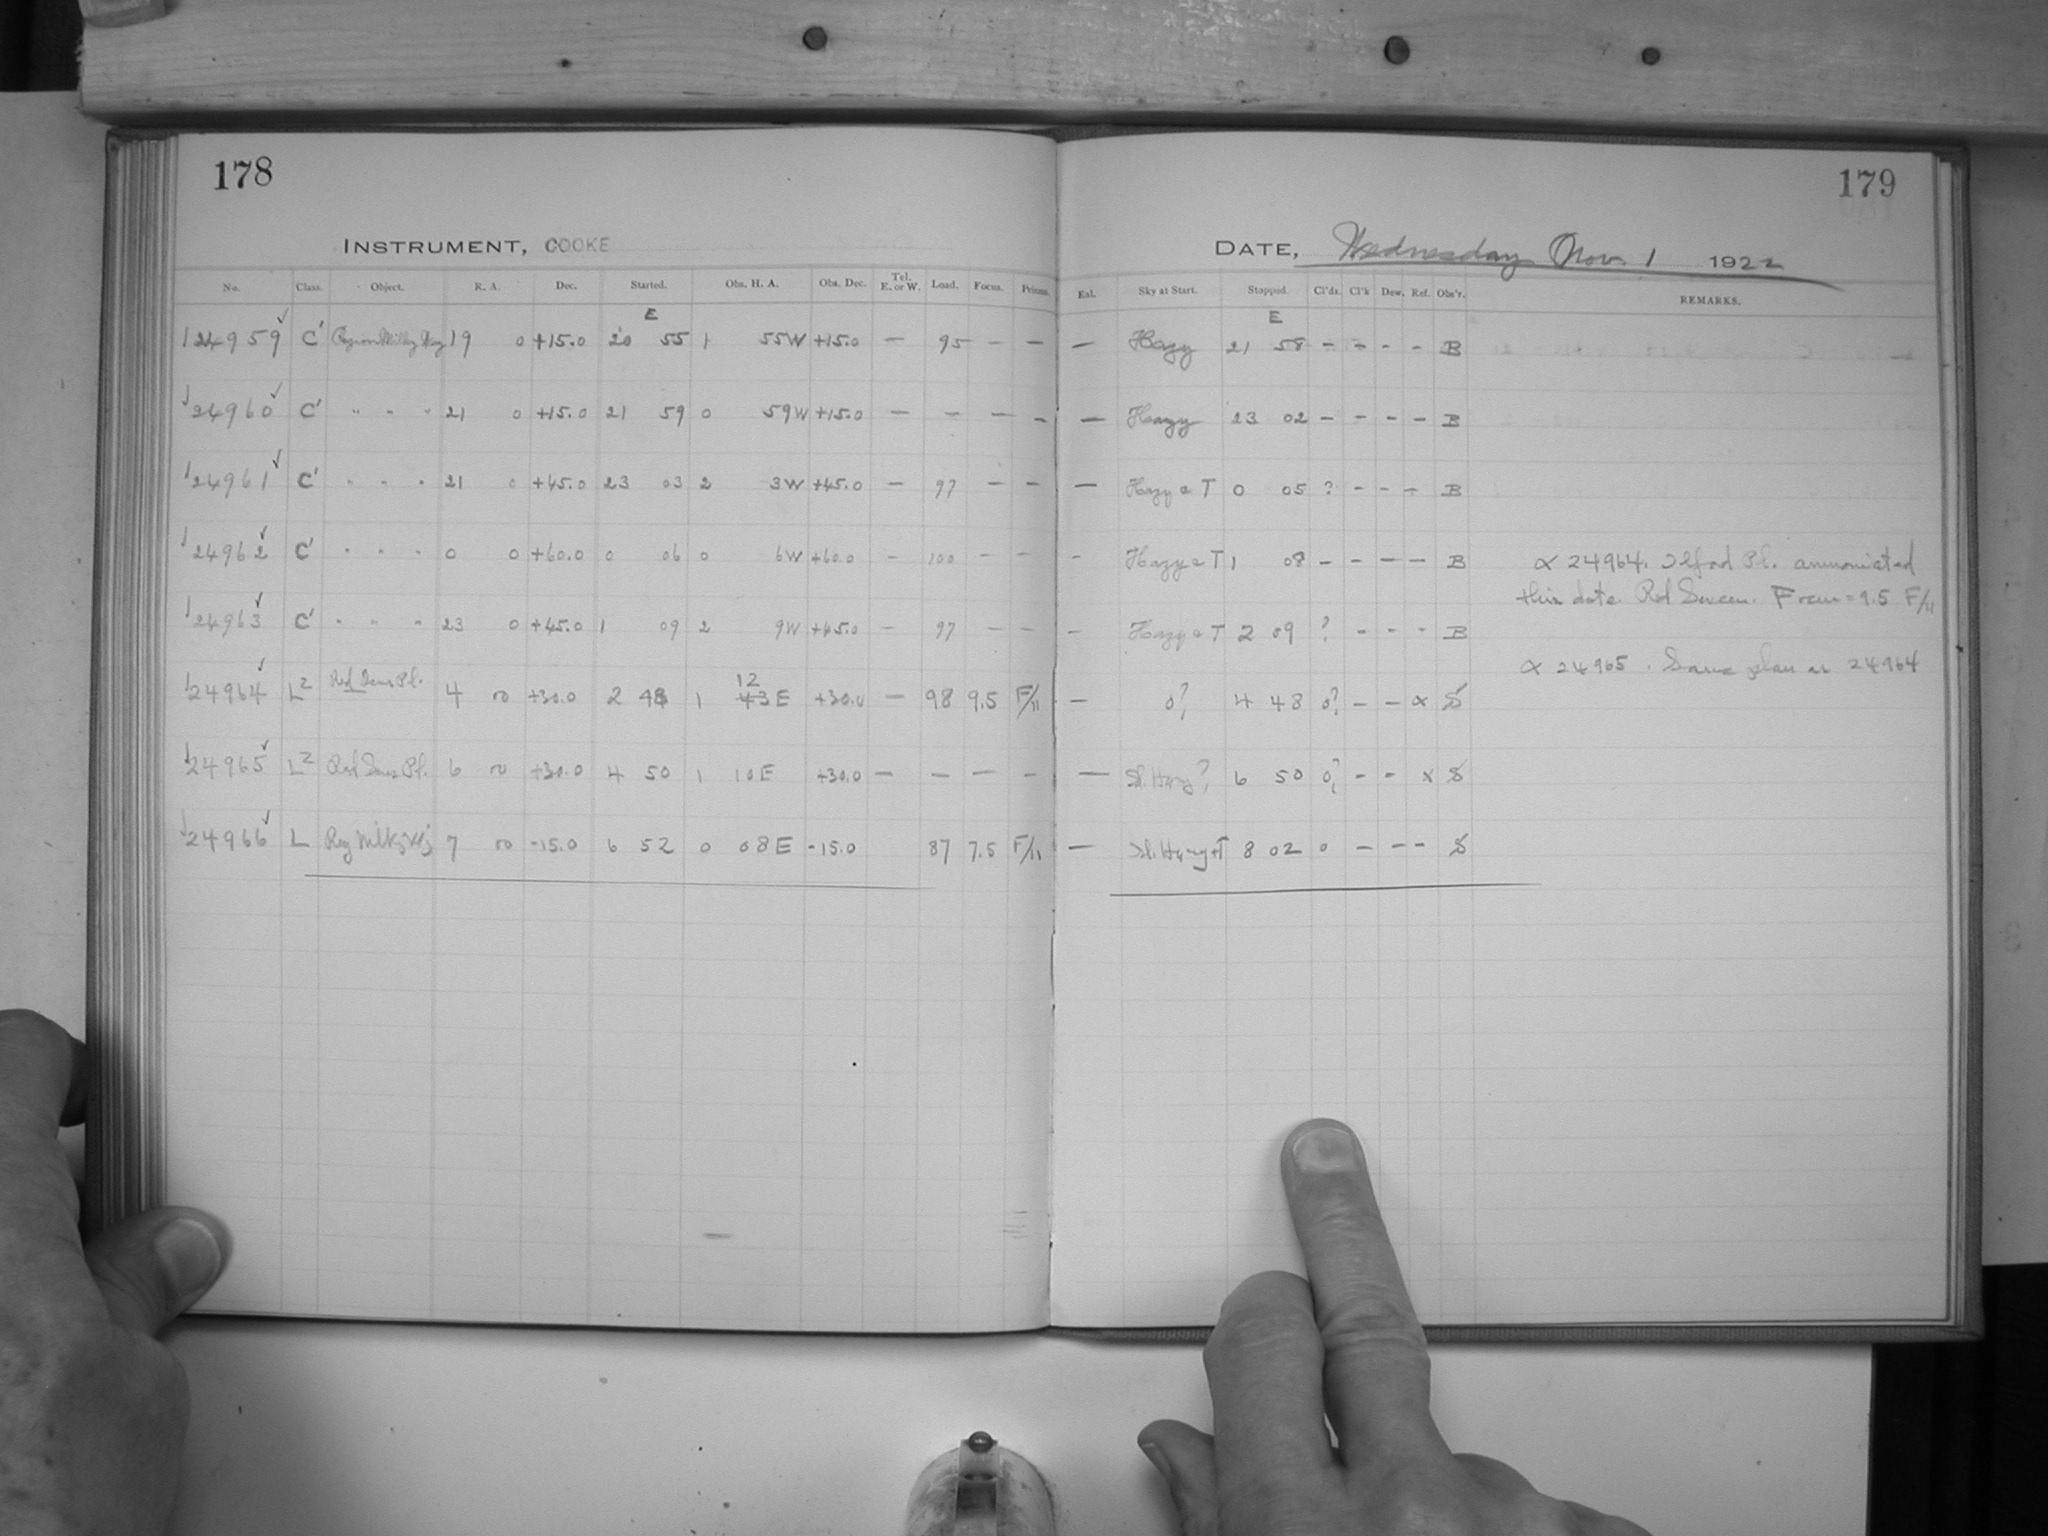 178
INSTRUMENT, COOKE
No. Class. Object. R. A. Dec. Started. Obs. H. A. Obs. Dec. Tel. E. or W. Load. Focus. Prisms.
E
24959 C' Region Milky Way 19 0 +15.0 20 55 1 55W +15.0 — 95 — —
24960 C' " " " 21 0 +15.0 21 59 0 59W +15.0 — — — —
24961 C' " " " 21 0 +45.0 23 03 2 3W +45.0 — 97 — —
24962 C' " " " 0 0 +60.0 0 06 0 6W +60.0 — 100 — —
24963 C' " " " 23 0 +45.0 1 09 2 9W +45.0 — 97 — —
12
24964 L² Red Sens Pl. 4 00 +30.0 2 48 1 43 E +30.0 — 98 9.5 F/11
24965 L² Red Sens Pl. 6 00 +30.0 4 50 1 10E +30.0 — — — —
24966 L Reg Milky Wy 7 00 -15.0 6 52 0 08E -15.0 87 7.5 F/11
179
DATE, Wednesday Nov. 1 1922
Eal. Sky at Start. Stopped. Cl'ds. Cl'k Dew. Ref. Obs'r. REMARKS.
E
— Hazy 21 58 — — — — B
— Hazy 23 02 — — — — B
— Hazy & T 0 05 ? — — — B
- Hazy & T 1 08 — — — — B
- Hazy & T 2 09 ? — — — B
— 0? 4 48 0? — — α S
— Sl. Hazy? 6 50 0? — — x S
— Sl. Hazy+T 8 02 0 — — — S
α 24964. Ilford Pl. ammoniated
this date. Red Screen. Focus = 9.5 F/11
α 24965. Same plan as 24964